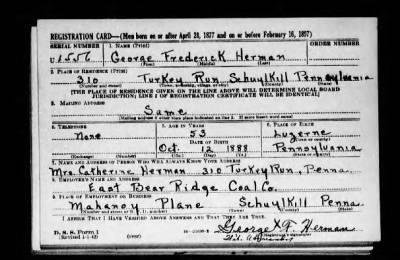 REGISTRATION CARD—(Men born on or after April 28, 1877 and on or before February 16, 1897)
SERIAL NUMBER 1. NAME (Print) ORDER NUMBER
U1556 George Frederick Herman
(First) (Middle) (Last)
2. PLACE OF RESIDENCE (Print)
310 Turkey Run Schuylkill Pennsylvania
(Number and street) (Town, township, village, or city) (County) (State)
[THE PLACE OF RESIDENCE GIVEN ON THE LINE ABOVE WILL DETERMINE LOCAL BOARD
JURISDICTION; LINE 2 OF REGISTRATION CERTIFICATE WILL BE IDENTICAL]
3. MAILING ADDRESS
Same
[Mailing address if other than place indicated on line 2. If same insert word same]
4. TELEPHONE 5. AGE IN YEARS 6. PLACE OF BIRTH
None 53 Luzerne
DATE OF BIRTH (Town or county)
Oct. 12 1888 Pennsylvania
(Exchange) (Number) (Mo.) (Day) (Yr.) (State or country)
7. NAME AND ADDRESS OF PERSON WHO WILL ALWAYS KNOW YOUR ADDRESS
Mrs. Catherine Herman 310 Turkey Run, Penna.
8. EMPLOYER'S NAME AND ADDRESS
East Bear Ridge Coal Co.
9. PLACE OF EMPLOYMENT OR BUSINESS
Mahanoy Plane Schuylkill Penna.
(Number and street or R. F. D. number) (Town) (County) (State)
I AFFIRM THAT I HAVE VERIFIED ABOVE ANSWERS AND THAT THEY ARE TRUE.
D. S. S. Form 1
George F. Herman
(Revised 4-1-42) (over) (Registrant's signature)